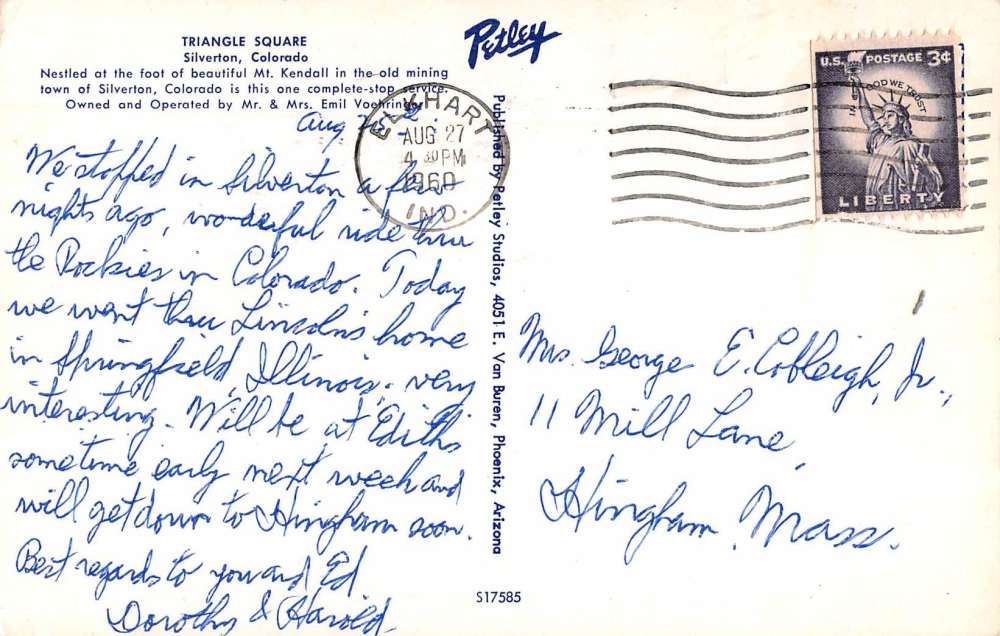 TRIANGLE SQUARE
Silverton, Colorado
Nestled at the foot of beautiful Mt. Kendall in the old mining
town of Silverton, Colorado is this one complete-stop service.
Owned and Operated by Mr. & Mrs. Emil Voehringer
Petley
Aug
We stopped in Silverton a few
nights ago, wonderful ride thru
the Rockies in Colorado. Today
we went thru Lincoln's home
in Springfield, Illinois, very
interesting. Will be at Edith's
sometime early next week and
will get down to Hingham soon.
Best regards to you and Ed
Dorothy & Harold
ELKHART
AUG 27
4 30 PM
1960
IND.
Published by Petley Studios, 4051 E. Van Buren, Phoenix, Arizona
S17585
U.S. POSTAGE 3¢
IN GOD WE TRUST
LIBERTY
Mrs. George E. Cobleigh, Jr.,
11 Mill Lane,
Hingham, Mass.